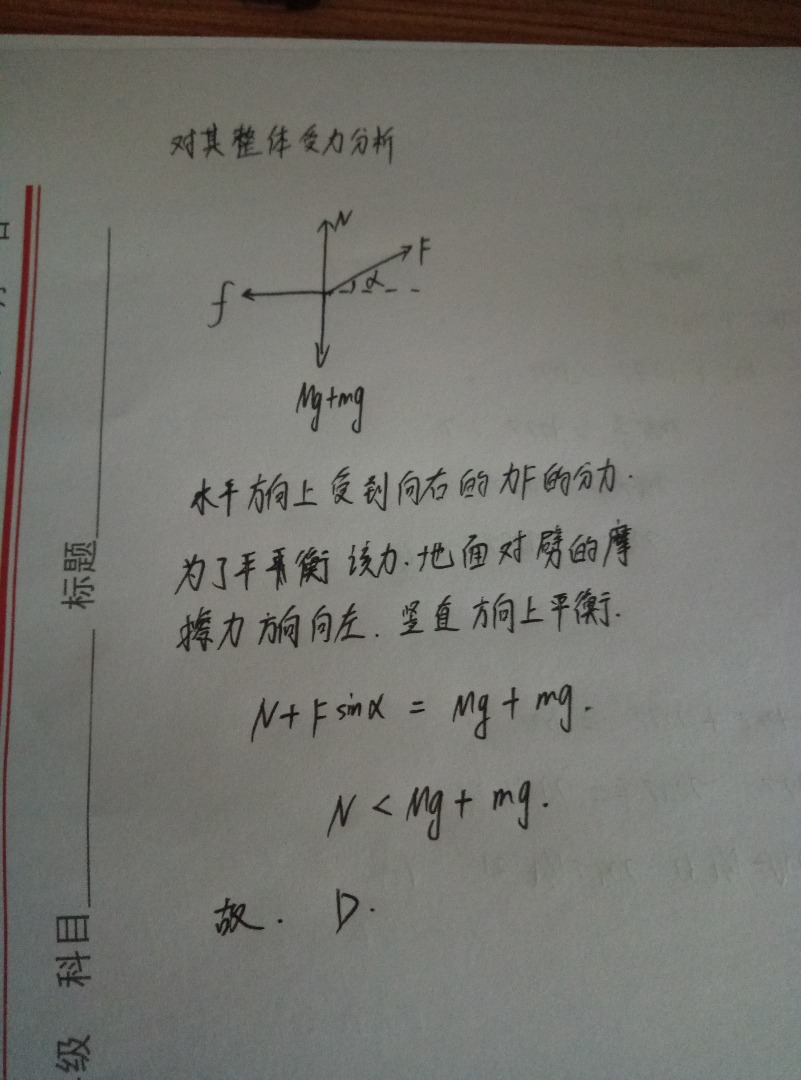 对其整体受力分析
N
F
α
f
Mg+mg
水平方向上受到向右的力F的分力.
为了平衡该力.地面对劈的摩
擦力方向向左.竖直方向上平衡.
N+Fsinα = Mg+mg.
N<Mg+mg.
故. D.
标题
科目
级